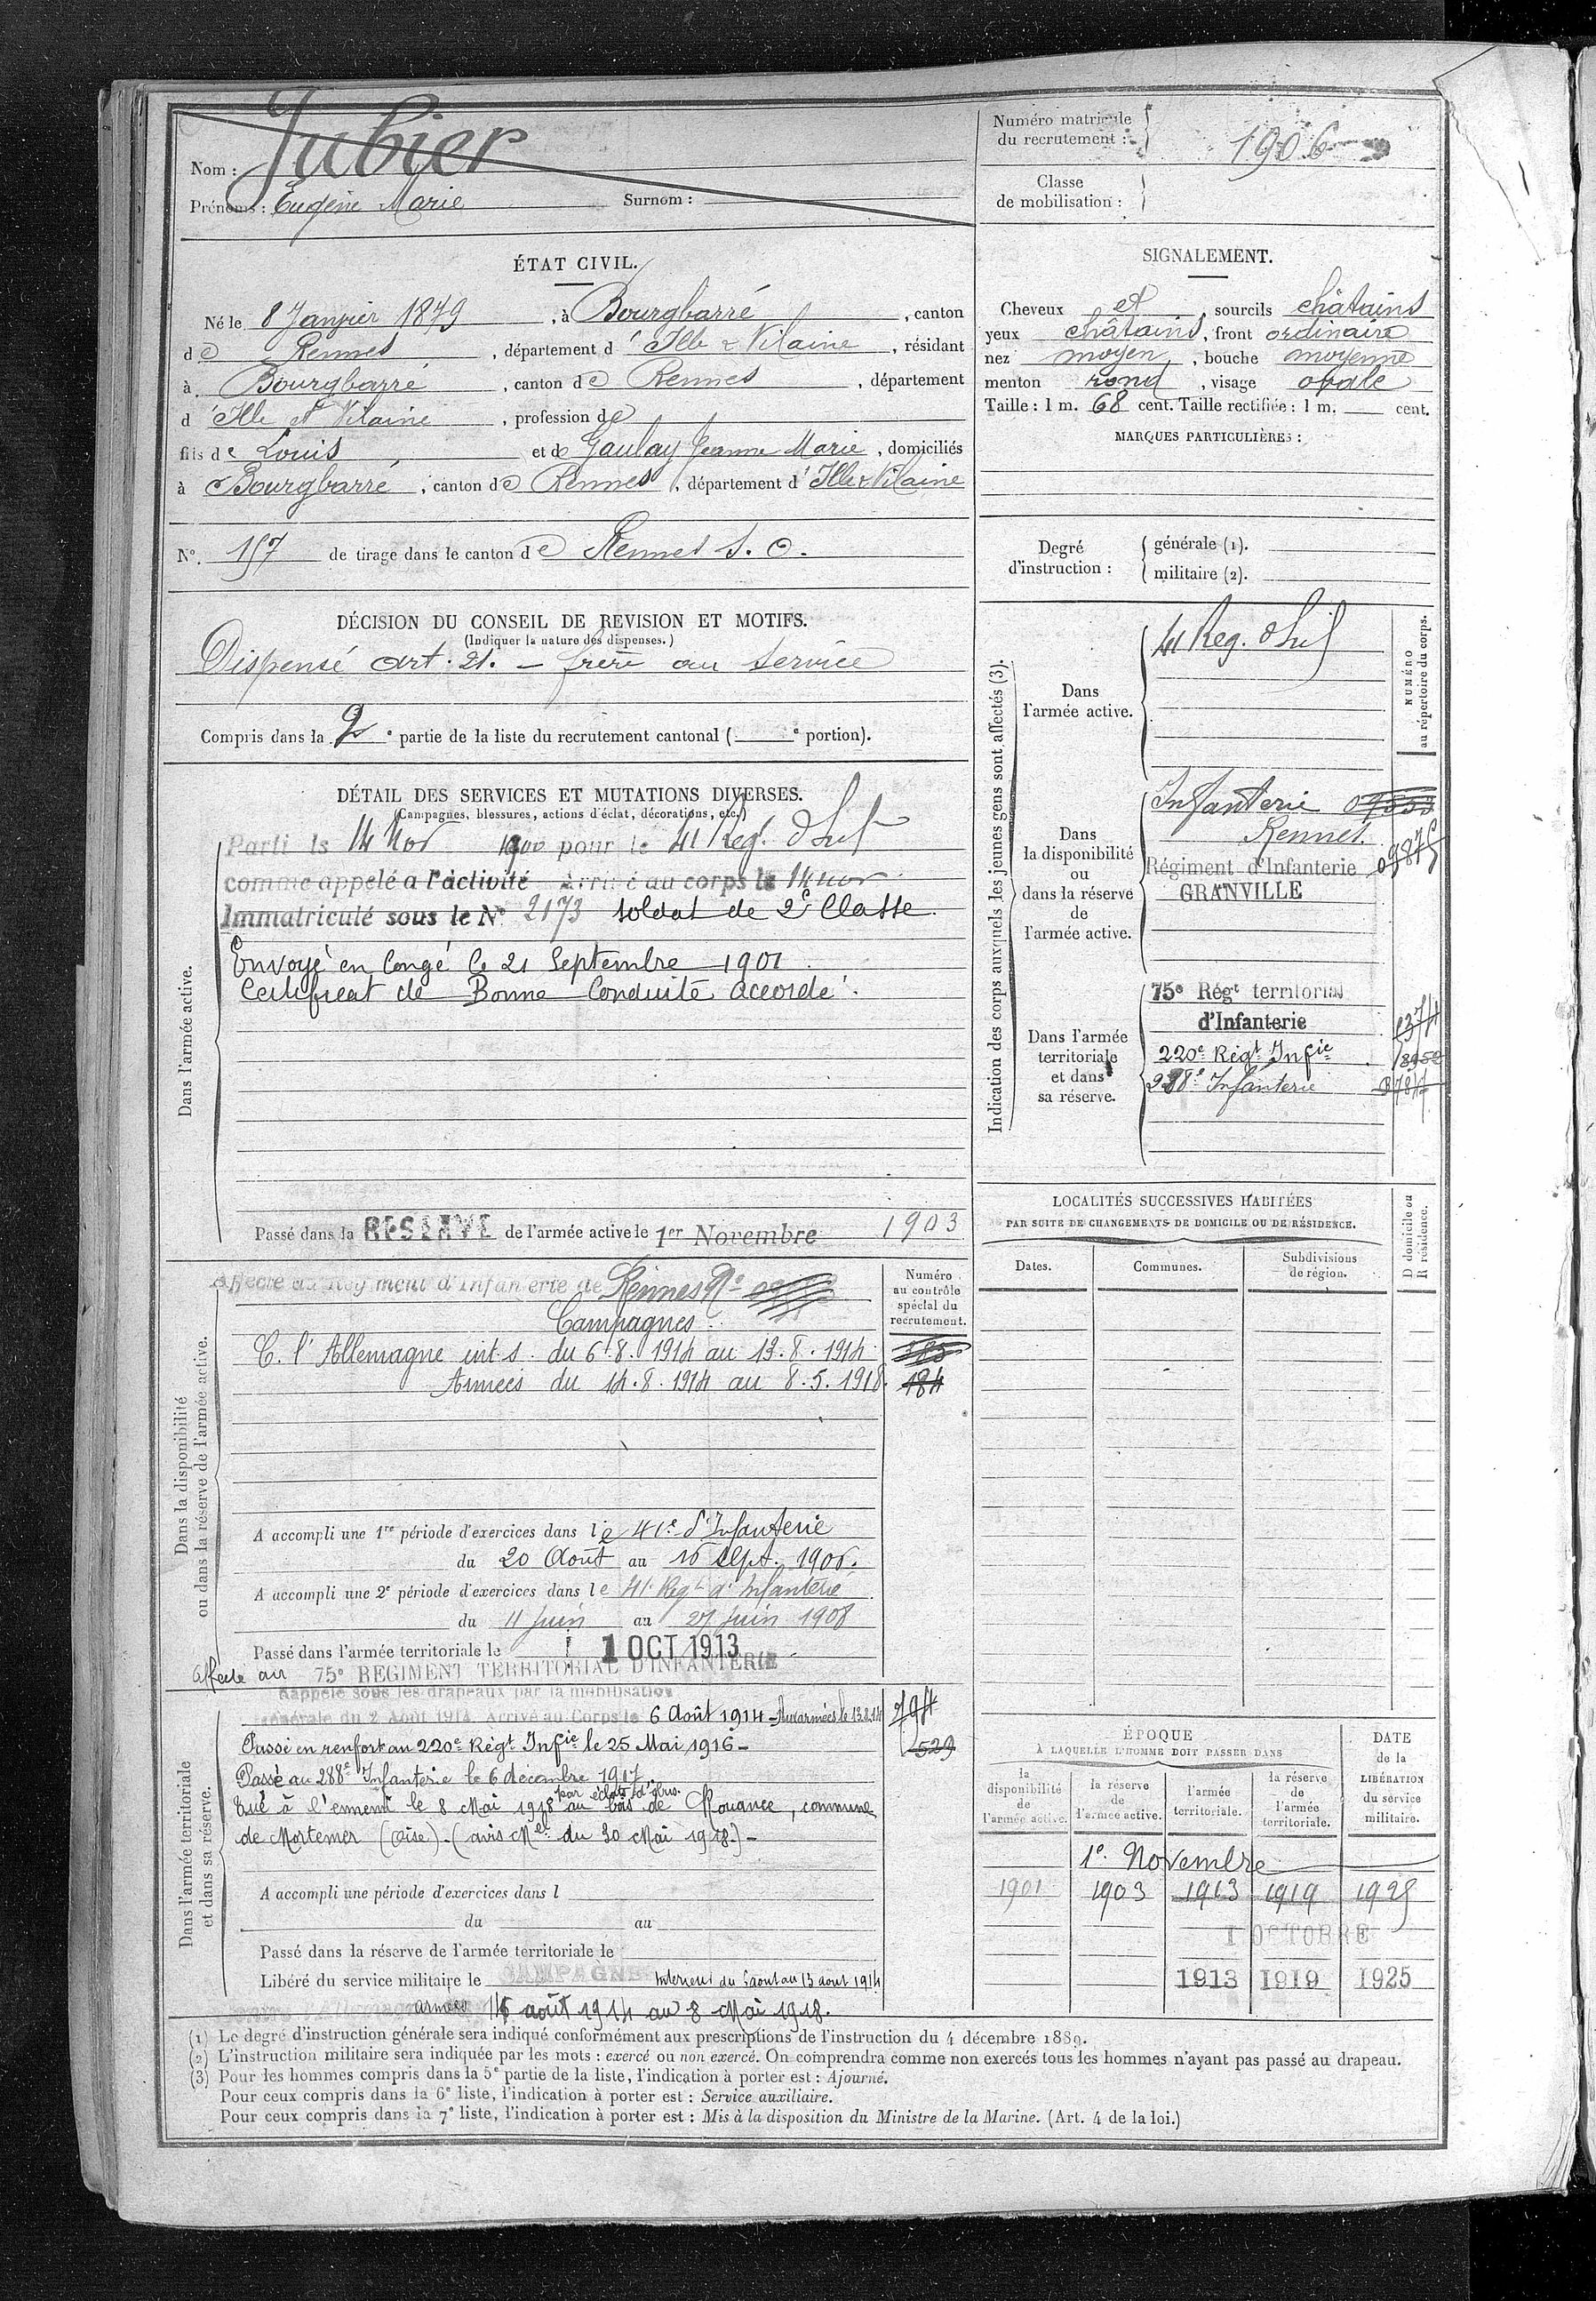 Nom : Jubier
Prénoms : Eugène Marie Surnom :
Numéro matricule
du recrutement : 1906
Classe
de mobilisation :
ÉTAT CIVIL.
Né le 8 Janvier 1879, à Bourgbarré, canton
de Rennes, département d'Ille & Vilaine, résidant
à Bourgbarré, canton de Rennes, département
d'Ille et Vilaine, profession de
fils de Louis et de Gaulay Jeanne Marie, domiciliés
à Bourgbarré, canton de Rennes, département d'Ille & Vilaine
N°. 157 de tirage dans le canton de Rennes S. O.
DÉCISION DU CONSEIL DE REVISION ET MOTIFS.
(Indiquer la nature des dispenses.)
Dispensé art. 21. – frère au service
Compris dans la 2e partie de la liste du recrutement cantonal ( e portion).
DÉTAIL DES SERVICES ET MUTATIONS DIVERSES.
(Campagnes, blessures, actions d'éclat, décorations, etc.)
Dans l'armée active.
Parti le 14 Nov 1900 pour le 41 Reg. d'Inf
comme appelé a l'activité Arrivé au corps le 14 nov
Immatriculé sous le N° 2173 soldat de 2e Classe.
Envoyé en Congé le 21 Septembre 1901
Certificat de Bonne Conduite accordé.
Passé dans la RESERVE de l'armée active le 1er Novembre 1903
Dans la disponibilité
ou dans la réserve de l'armée active.
Affecté au Régiment d'Infanterie de Rennes No
Numéro
au contrôle
spécial du
recrutement.
Campagnes :
C. l'Allemagne int s. du 6.8.1914 au 13.8.1914
Armées du 14.8.1914 au 8.5.1918. 184
A accompli une 1re période d'exercices dans le 41e d'Infanterie
du 20 Août au 16 sept. 1906.
A accompli une 2e période d'exercices dans le 41 Regt d'Infanterie
du 11 Juin au 27 Juin 1908
Passé dans l'armée territoriale le 1 OCT 1913
Affecté au 75e REGIMENT TERRITORIAL D'INFANTERIE
Dans l'armée territoriale
et dans sa réserve.
Rappelé sous les drapeaux par la mobilisation
générale du 2 Août 1914. Arrivé au Corps le 6 Août 1914 – Aux armées le 13.8.14
Passé en renfort au 220e Régt Infie le 25 Mai 1916 – 529
Passé au 288e Infanterie le 6 décembre 1917.
par éclats d'obus.
Tué à l'ennemi le 8 Mai 1918 au bois de Rouance, commune
de Mortemer (Oise). (avis Mel du 30 Mai 1918.) –
A accompli une période d'exercices dans l
du au
Passé dans la réserve de l'armée territoriale le
Libéré du service militaire le CAMPAGNE Intérieur du 6 aout au 13 aout 1914
armées 14 août 1914 au 8 Mai 1918.
SIGNALEMENT.
Cheveux et, sourcils châtains
yeux châtains, front ordinaire
nez moyen, bouche moyenne
menton rond, visage ovale
Taille : 1 m. 68 cent. Taille rectifiée : 1 m. cent.
MARQUES PARTICULIÈRES :
Degré
d'instruction :
générale (1).
militaire (2).
Indication des corps auxquels les jeunes gens sont affectés (3).
NUMÉRO
au répertoire du corps.
Dans
l'armée active.
41 Reg. d'Inf
Dans
la disponibilité
ou
dans la réserve
de
l'armée active.
Infanterie
Rennes.
Régiment d'Infanterie 09875
GRANVILLE
Dans l'armée
territoriale
et dans
sa réserve.
75e Régt territorial
d'Infanterie
220e Régt Infie
288e Infanterie
LOCALITÉS SUCCESSIVES HABITÉES
PAR SUITE DE CHANGEMENTS DE DOMICILE OU DE RÉSIDENCE.
D domicile ou
R résidence.
Dates. Communes. Subdivisions
de région.
ÉPOQUE
À LAQUELLE L'HOMME DOIT PASSER DANS
DATE
de la
LIBÉRATION
du service
militaire.
la
disponibilité
de
l'armée active.
la réserve
de
l'armée active.
l'armée
territoriale.
la réserve
de
l'armée
territoriale.
1er Novembre
1901 1903 1913 1919 1925
1 OCTOBRE
1913 1919 1925
(1) Le degré d'instruction générale sera indiqué conformément aux prescriptions de l'instruction du 4 décembre 1889.
(2) L'instruction militaire sera indiquée par les mots : exercé ou non exercé. On comprendra comme non exercés tous les hommes n'ayant pas passé au drapeau.
(3) Pour les hommes compris dans la 5e partie de la liste, l'indication à porter est : Ajourné.
Pour ceux compris dans la 6e liste, l'indication à porter est : Service auxiliaire.
Pour ceux compris dans la 7e liste, l'indication à porter est : Mis à la disposition du Ministre de la Marine. (Art. 4 de la loi.)